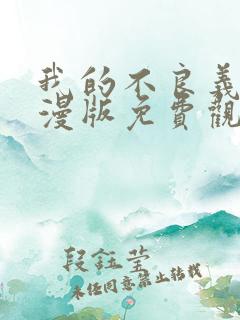 我的不良義
漫版免費觀
段鈺瑩
未经同意禁止转载